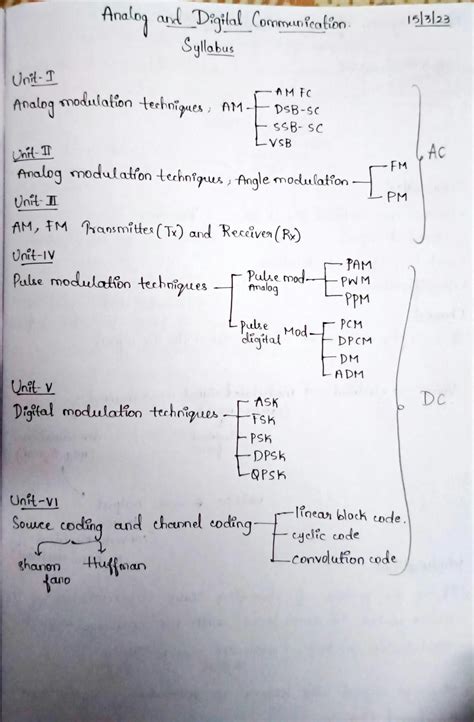 Analog and Digital Communication. 15/3/23
Syllabus
Unit-I
Analog modulation techniques, AM
AM FC
DSB-SC
SSB-SC
VSB
AC
Unit-II
Analog modulation techniques, Angle modulation
FM
PM
Unit-III
AM, FM Transmitter (Tx) and Receiver (Rx)
Unit-IV
Pulse modulation techniques
Pulse mod
Analog
PAM
PWM
PPM
Pulse Mod
digital
PCM
DPCM
DM
ADM
DC
Unit-V
Digital modulation techniques
ASK
FSK
PSK
DPSK
QPSK
Unit-VI
Source coding and channel coding
linear block code.
cyclic code
convolution code
shanon
fano
Huffman